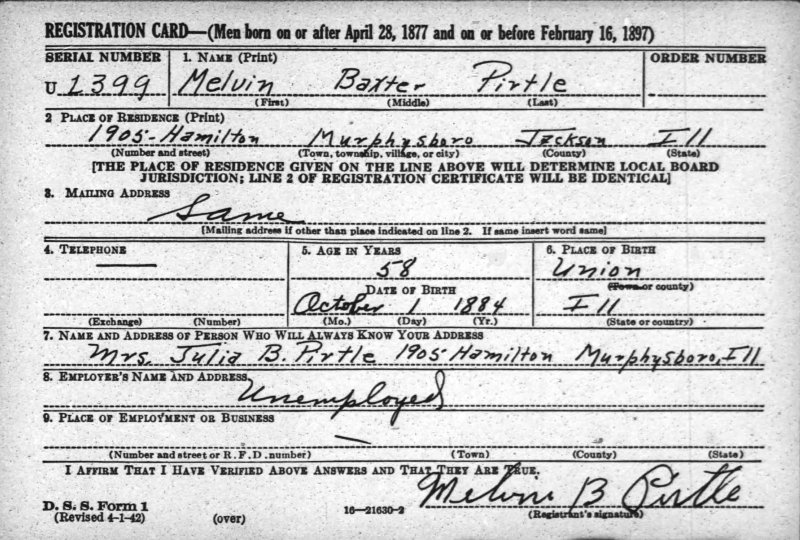 REGISTRATION CARD—(Men born on or after April 28, 1877 and on or before February 16, 1897)
SERIAL NUMBER 1. NAME (Print) ORDER NUMBER
U 1399 Melvin Baxter Pirtle
(First) (Middle) (Last)
2 PLACE OF RESIDENCE (Print)
1905-Hamilton Murphysboro Jackson Ill
(Number and street) (Town, township, village, or city) (County) (State)
[THE PLACE OF RESIDENCE GIVEN ON THE LINE ABOVE WILL DETERMINE LOCAL BOARD
JURISDICTION; LINE 2 OF REGISTRATION CERTIFICATE WILL BE IDENTICAL]
3. MAILING ADDRESS
Same
[Mailing address if other than place indicated on line 2. If same insert word same]
4. TELEPHONE 5. AGE IN YEARS 6. PLACE OF BIRTH
58 Union
DATE OF BIRTH (Town or county)
October 1 1884 Ill
(Exchange) (Number) (Mo.) (Day) (Yr.) (State or country)
7. NAME AND ADDRESS OF PERSON WHO WILL ALWAYS KNOW YOUR ADDRESS
Mrs. Julia B. Pirtle 1905-Hamilton Murphysboro, Ill
8. EMPLOYER'S NAME AND ADDRESS
Unemployed
9. PLACE OF EMPLOYMENT OR BUSINESS
—
(Number and street or R. F. D. number) (Town) (County) (State)
I AFFIRM THAT I HAVE VERIFIED ABOVE ANSWERS AND THAT THEY ARE TRUE.
Melvin B Pirtle
D. S. S. Form 1
(Revised 4-1-42) (over) 16—21630-2 (Registrant's signature)